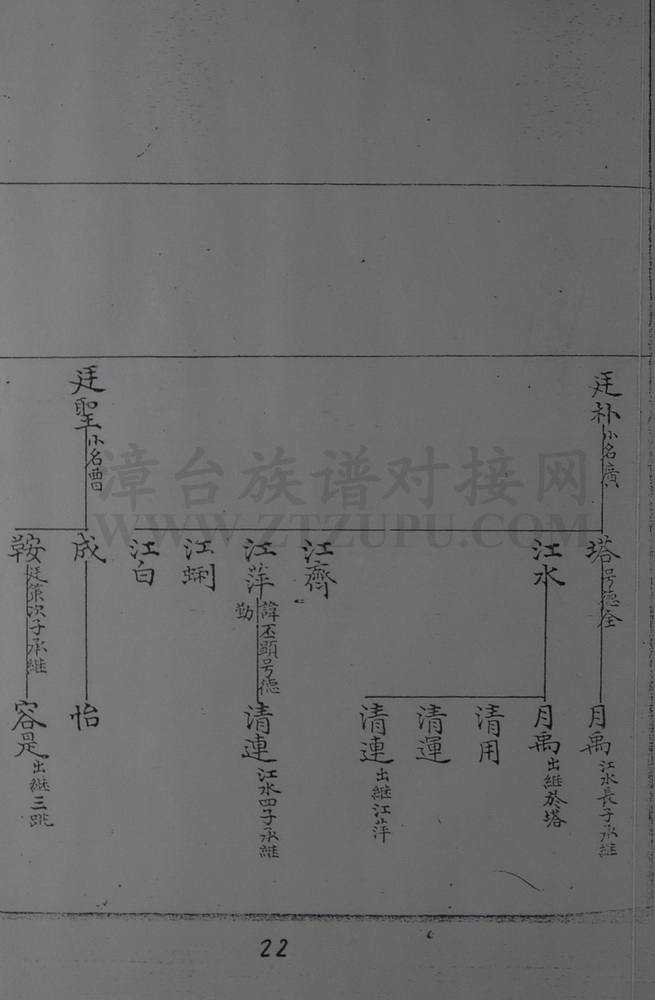 廷朴 小名廣
廷聖 小名曹
漳台族谱对接网
WWW.ZTZUPU.COM
塔 号德全
江水
江齊
江萍 諱丕顕号德勤
江蜊
江白
成
鞍 廷策次子承継
月禹 江水長子承継
月禹 出継於塔
清用
清運
清連 出継江萍
清連 江水四子承継
怡
容是 出継三跳
22